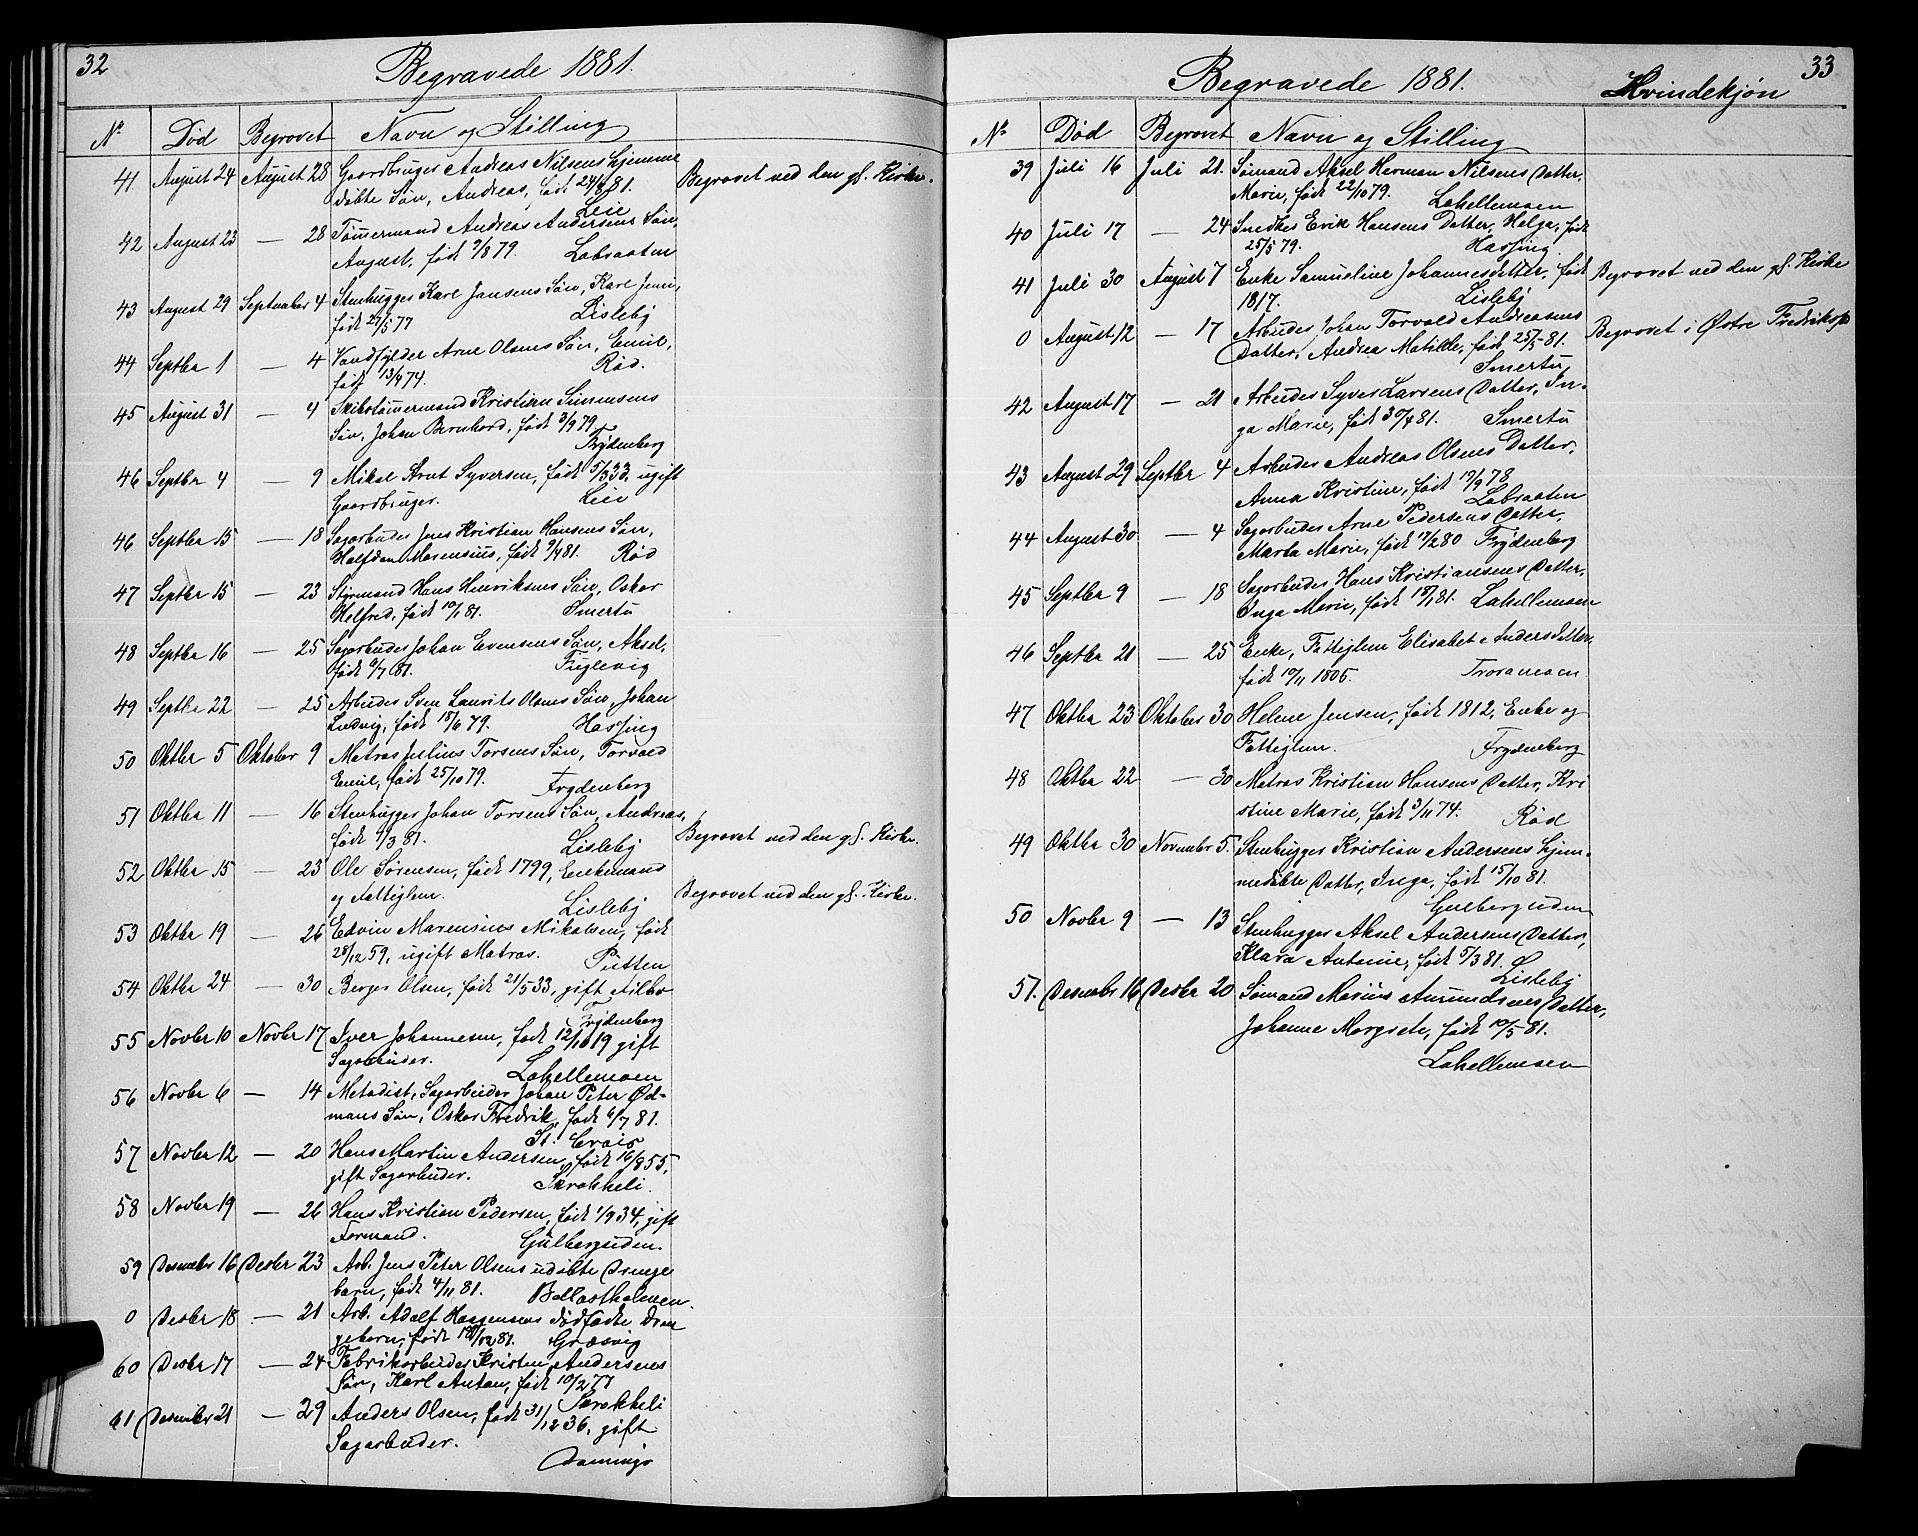 32
Begravede 1881.
No Død Begravet Navn og Stilling
41 August 24 August 28 Gaardbruger Andreas Nilsens hjemme Begravet ved den gl. Kirke.
døbte Søn, Andreas, født 24/8 81.
Leie
42 August 23 — 28 Tømmermand Andreas Andersens Søn,
August, født 9/8 79. Labraaten
43 August 29 September 4 Stenhugger Karl Jansens Søn, Karl
født 27/5 77 Lisleby
44 Septbr 1 — 4 Vandfylder Arne Olsens Søn, Emil,
født 13/4 74. Rød.
45 August 31 — 4 Skibstømmermand Kristian Simensens
Søn, Johan Bernhard, født 3/9 79
Frydenberg
46 Septbr 4 — 9 Mikal Arnt Syversen, født 5/3 33, ugift
Gaardbruger. Leie
46 Septbr 15 — 18 Sagarbeider Jens Kristian Hansens Søn,
Halfdan Marensius, født 9/4 81. Rød
47 Septbr 15 — 23 Styrmand Hans Henriksens Søn, Oskar
Helfred, født 10/1 81. Smertu
48 Septbr 16 — 25 Sagarbeider Johan Evensens Søn, Aksel,
født 6/7 81. Fuglevig
49 Septbr 22 — 25 Arbeider Sven Laurits Olsens Søn, Johan
Ludvig, født 15/6 79. Hassing
50 Oktbr 5 Oktober 9 Matros Julius Torsens Søn, Torvald
Emil, født 25/10 79. Frydenberg
51 Oktbr 11 — 16 Stenhugger Johan Torsens Søn, Andreas,
født 1/3 81. Lisleby Begravet ved den gl. Kirke.
52 Oktbr 15 — 23 Ole Sørensen, født 1799, Enkemand
og Fattiglem. Lisleby Begravet ved den gl. Kirke.
53 Oktbr 19 — 26 Edvin Marensius Mikalsen, født
28/12 59, ugift Matros. Putten
54 Oktbr 24 — 30 Berger Olsen, født 21/5 33, gift
Frydenberg
55 Novbr 10 Novbr 17 Iver Johannesen, født 12/10 19 gift
Sagarbeider. Lahellemoen
56 Novbr 6 — 14 Metodist, Sagarbeider Johan Peter Ød-
mans Søn, Oskar Fredrik, født 6/7 81.
St. Croix
57 Novbr 12 — 20 Hans Martin Andersen, født 16/8 55,
gift Sagarbeider. Skrakkeli.
58 Novbr 19 — 26 Hans Kristian Pedersen, født 1/9 34, gift
Formand. Gulberguden.
59 Desember 16 Desbr 23 Arb. Jens Peter Olsens udøbte Drenge
barn, født 4/11 81. Ballastholmen.
0 Desbr 18 — 21 Arb. Adolf Hagensens dødfødte Dren
gebarn, født 18/12 81. Græsvig
60 Desbr 17 — 24 Fabrikarbeider Kristen Andersens
Søn, Karl Anton, født 10/2 77
Skrakkeli
61 Desember 21 — 29 Anders Olsen, født 31/12 36, gift
Sagarbeider.
33
Begravede 1881. Kvindekjøn
No Død Begravet Navn og Stilling
39 Juli 16 Juli 21. Sømand Aksel Herman Nilsens Datter,
Marie, født 22/10 79. Lahellemoen
40 Juli 17 — 24 Snedker Erik Hansens Datter, Helga, født
25/5 79. Hassing
41 Juli 30 August 7 Enke Samueline Johannesdatter, født Begravet ved den gl. Kirke
1817. Lisleby
0 August 12 — 17 Arbeider Johan Torvald Andreasens Begravet i Østre Fredrikst
Datter, Andrea Matilde, født 25/5 81.
Smertu
42 August 17 — 21 Arbeider Syver Larsens Datter, In-
ga Marie, født 30/4 81. Smertu
43 August 29 Septbr 4 Arbeider Andreas Olsens Datter,
Anna Kristine, født 19/9 78
Labraaten
44 August 30 — 4 Sagarbeider Arne Pedersens Datter,
Marta Marie, født 17/2 80 Frydenberg
45 Septbr 9 — 18 Sagarbeider Hans Kristiansens Datter,
Inga Marie, født 18/1 81. Lahellemoen
46 Septbr 21 — 25 Enke, Fattiglem Elisabet Andersdatter,
født 19/11 1805. Traramoen
47 Oktbr 23 Oktober 30 Helene Jensen, født 1812, Enke og
Fattiglem. Frydenberg
48 Oktbr 22 — 30 Matros Kristian Hansens Datter, Kri
stine Marie, født 3/11 74. Rød
49 Oktbr 30 November 5. Stenhugger Kristian Andersens hjem-
medøbte Datter, Inga, født 15/10 81.
Gulberguden
50 Novbr 9 — 13 Stenhugger Aksel Andersens Datter,
Klara Antonie, født 5/3 81. Lisleby
51. Desembr 16 Desbr 20 Sømand Marius Amundsens Datter,
Johanne Margrete, født 19/5 81.
Lahellemoen